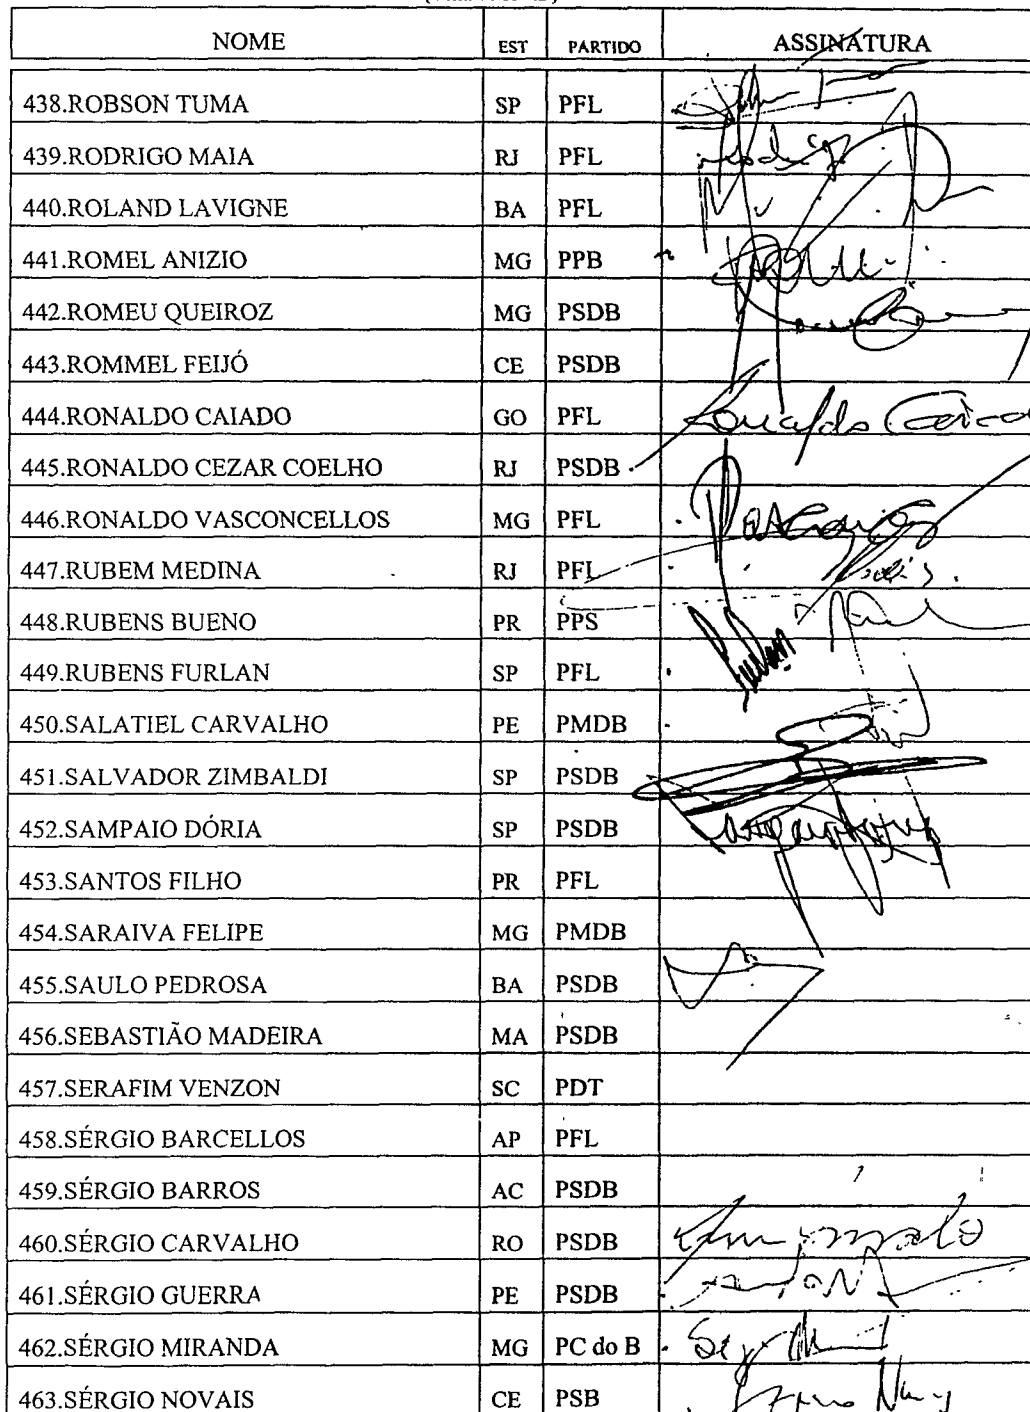 NOME EST PARTIDO ASSINATURA
438.ROBSON TUMA SP PFL
439.RODRIGO MAIA RJ PFL Rodrigo
440.ROLAND LAVIGNE BA PFL
441.ROMEL ANIZIO MG PPB
442.ROMEU QUEIROZ MG PSDB
443.ROMMEL FEIJÓ CE PSDB
444.RONALDO CAIADO GO PFL Ronaldo Caiado
445.RONALDO CEZAR COELHO RJ PSDB
446.RONALDO VASCONCELLOS MG PFL
447.RUBEM MEDINA RJ PFL
448.RUBENS BUENO PR PPS
449.RUBENS FURLAN SP PFL
450.SALATIEL CARVALHO PE PMDB
451.SALVADOR ZIMBALDI SP PSDB
452.SAMPAIO DÓRIA SP PSDB
453.SANTOS FILHO PR PFL
454.SARAIVA FELIPE MG PMDB
455.SAULO PEDROSA BA PSDB
456.SEBASTIÃO MADEIRA MA PSDB
457.SERAFIM VENZON SC PDT
458.SÉRGIO BARCELLOS AP PFL
459.SÉRGIO BARROS AC PSDB
460.SÉRGIO CARVALHO RO PSDB
461.SÉRGIO GUERRA PE PSDB
462.SÉRGIO MIRANDA MG PC do B
463.SÉRGIO NOVAIS CE PSB